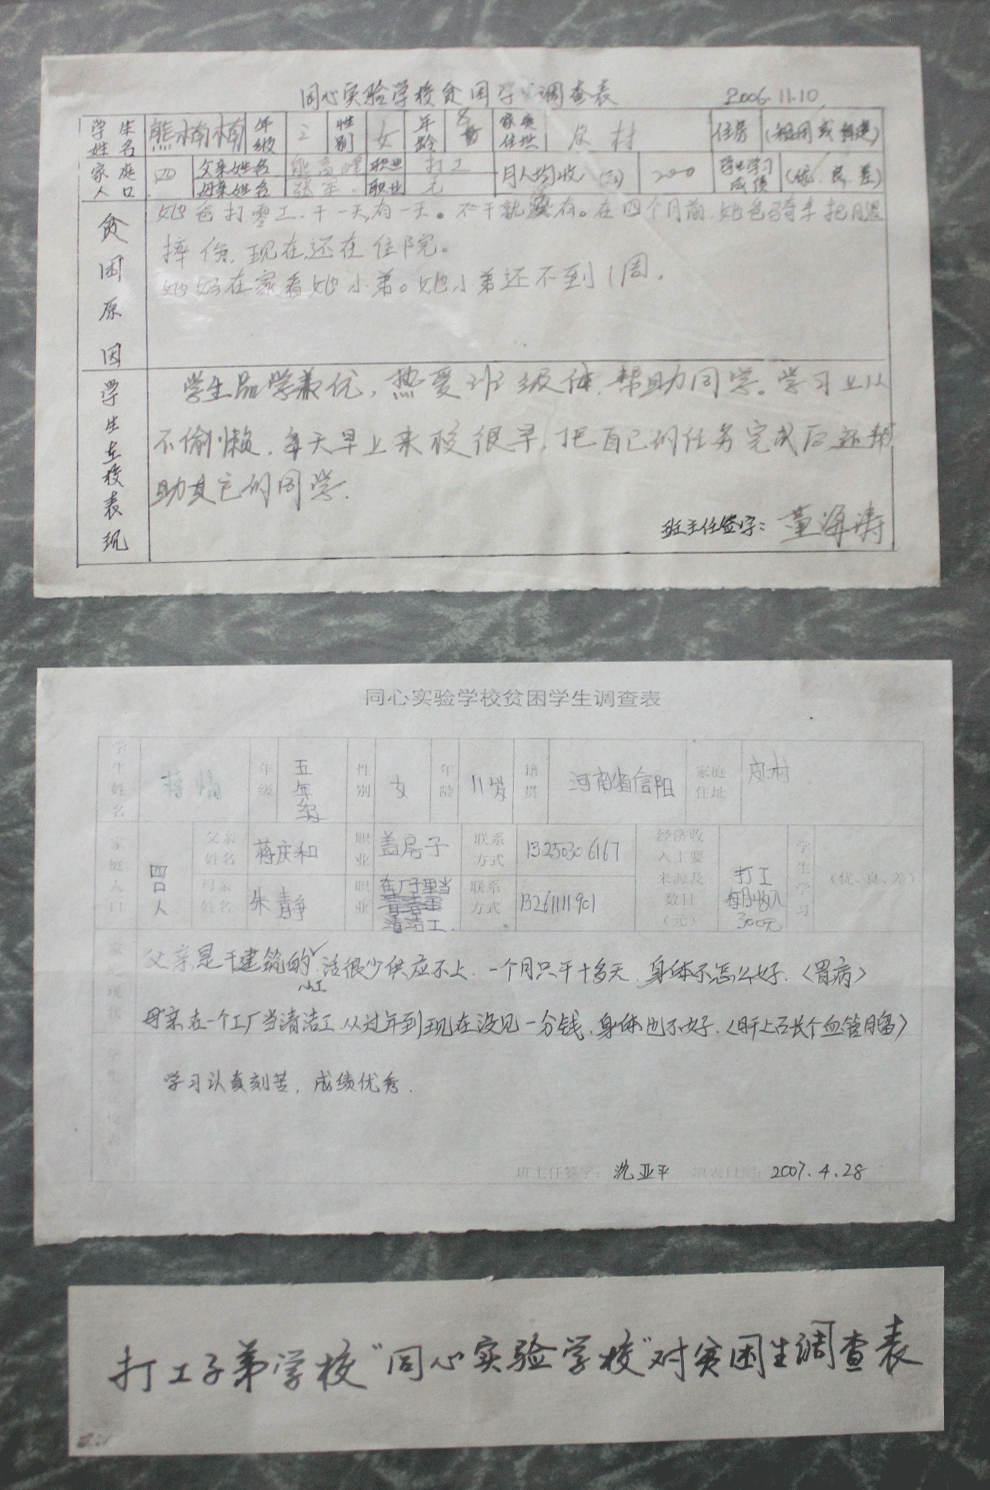 同心实验学校贫困学生调查表 2006.11.10.
学生姓名 熊楠楠 年级 二 性别 女 年龄 8岁 家庭住址 皮村 住房 (租用或自建)
家庭人口 四 父亲姓名 职业 打工 月人均收(元) 200 学生学习成绩 (优、良、差)
母亲姓名 张 职业 无
贫困原因
她爸打零工、干一天有一天。不干就没有。在四个月前,她爸骑车把腿
摔伤,现在还在住院。
她妈在家看她小弟。她小弟还不到1周。
学生在校表现
学生品学兼优,热爱班级体,帮助同学。学习上从
不偷懒,每天早上来校很早,把自己的任务完成后还帮
助其它的同学.
班主任签字: 董海涛
同心实验学校贫困学生调查表
学生姓名 蒋倩 年级 五年级 性别 女 年龄 11岁 籍贯 河南省信阳 家庭住址 皮村
家庭人口 四口人 父亲姓名 蒋庆和 职业 盖房子 联系方式 13250306167 经济收入主要来源及数目(元) 打工每月收入300元 学生学习 (优、良、差)
母亲姓名 朱青静 职业 在厂子里当清洁工. 联系方式 13261111901
父亲是干建筑的小工活很少供应不上.一个月只干十多天,身体不怎么好.〈胃病〉
母亲在一个工厂当清洁工从过年到现在没见一分钱,身体也不好.〈肝上石长个血管瘤〉
学习认真刻苦,成绩优秀.
班主任签字: 沈亚平 填表日期: 2007.4.28
打工子弟学校"同心实验学校"对贫困生调查表